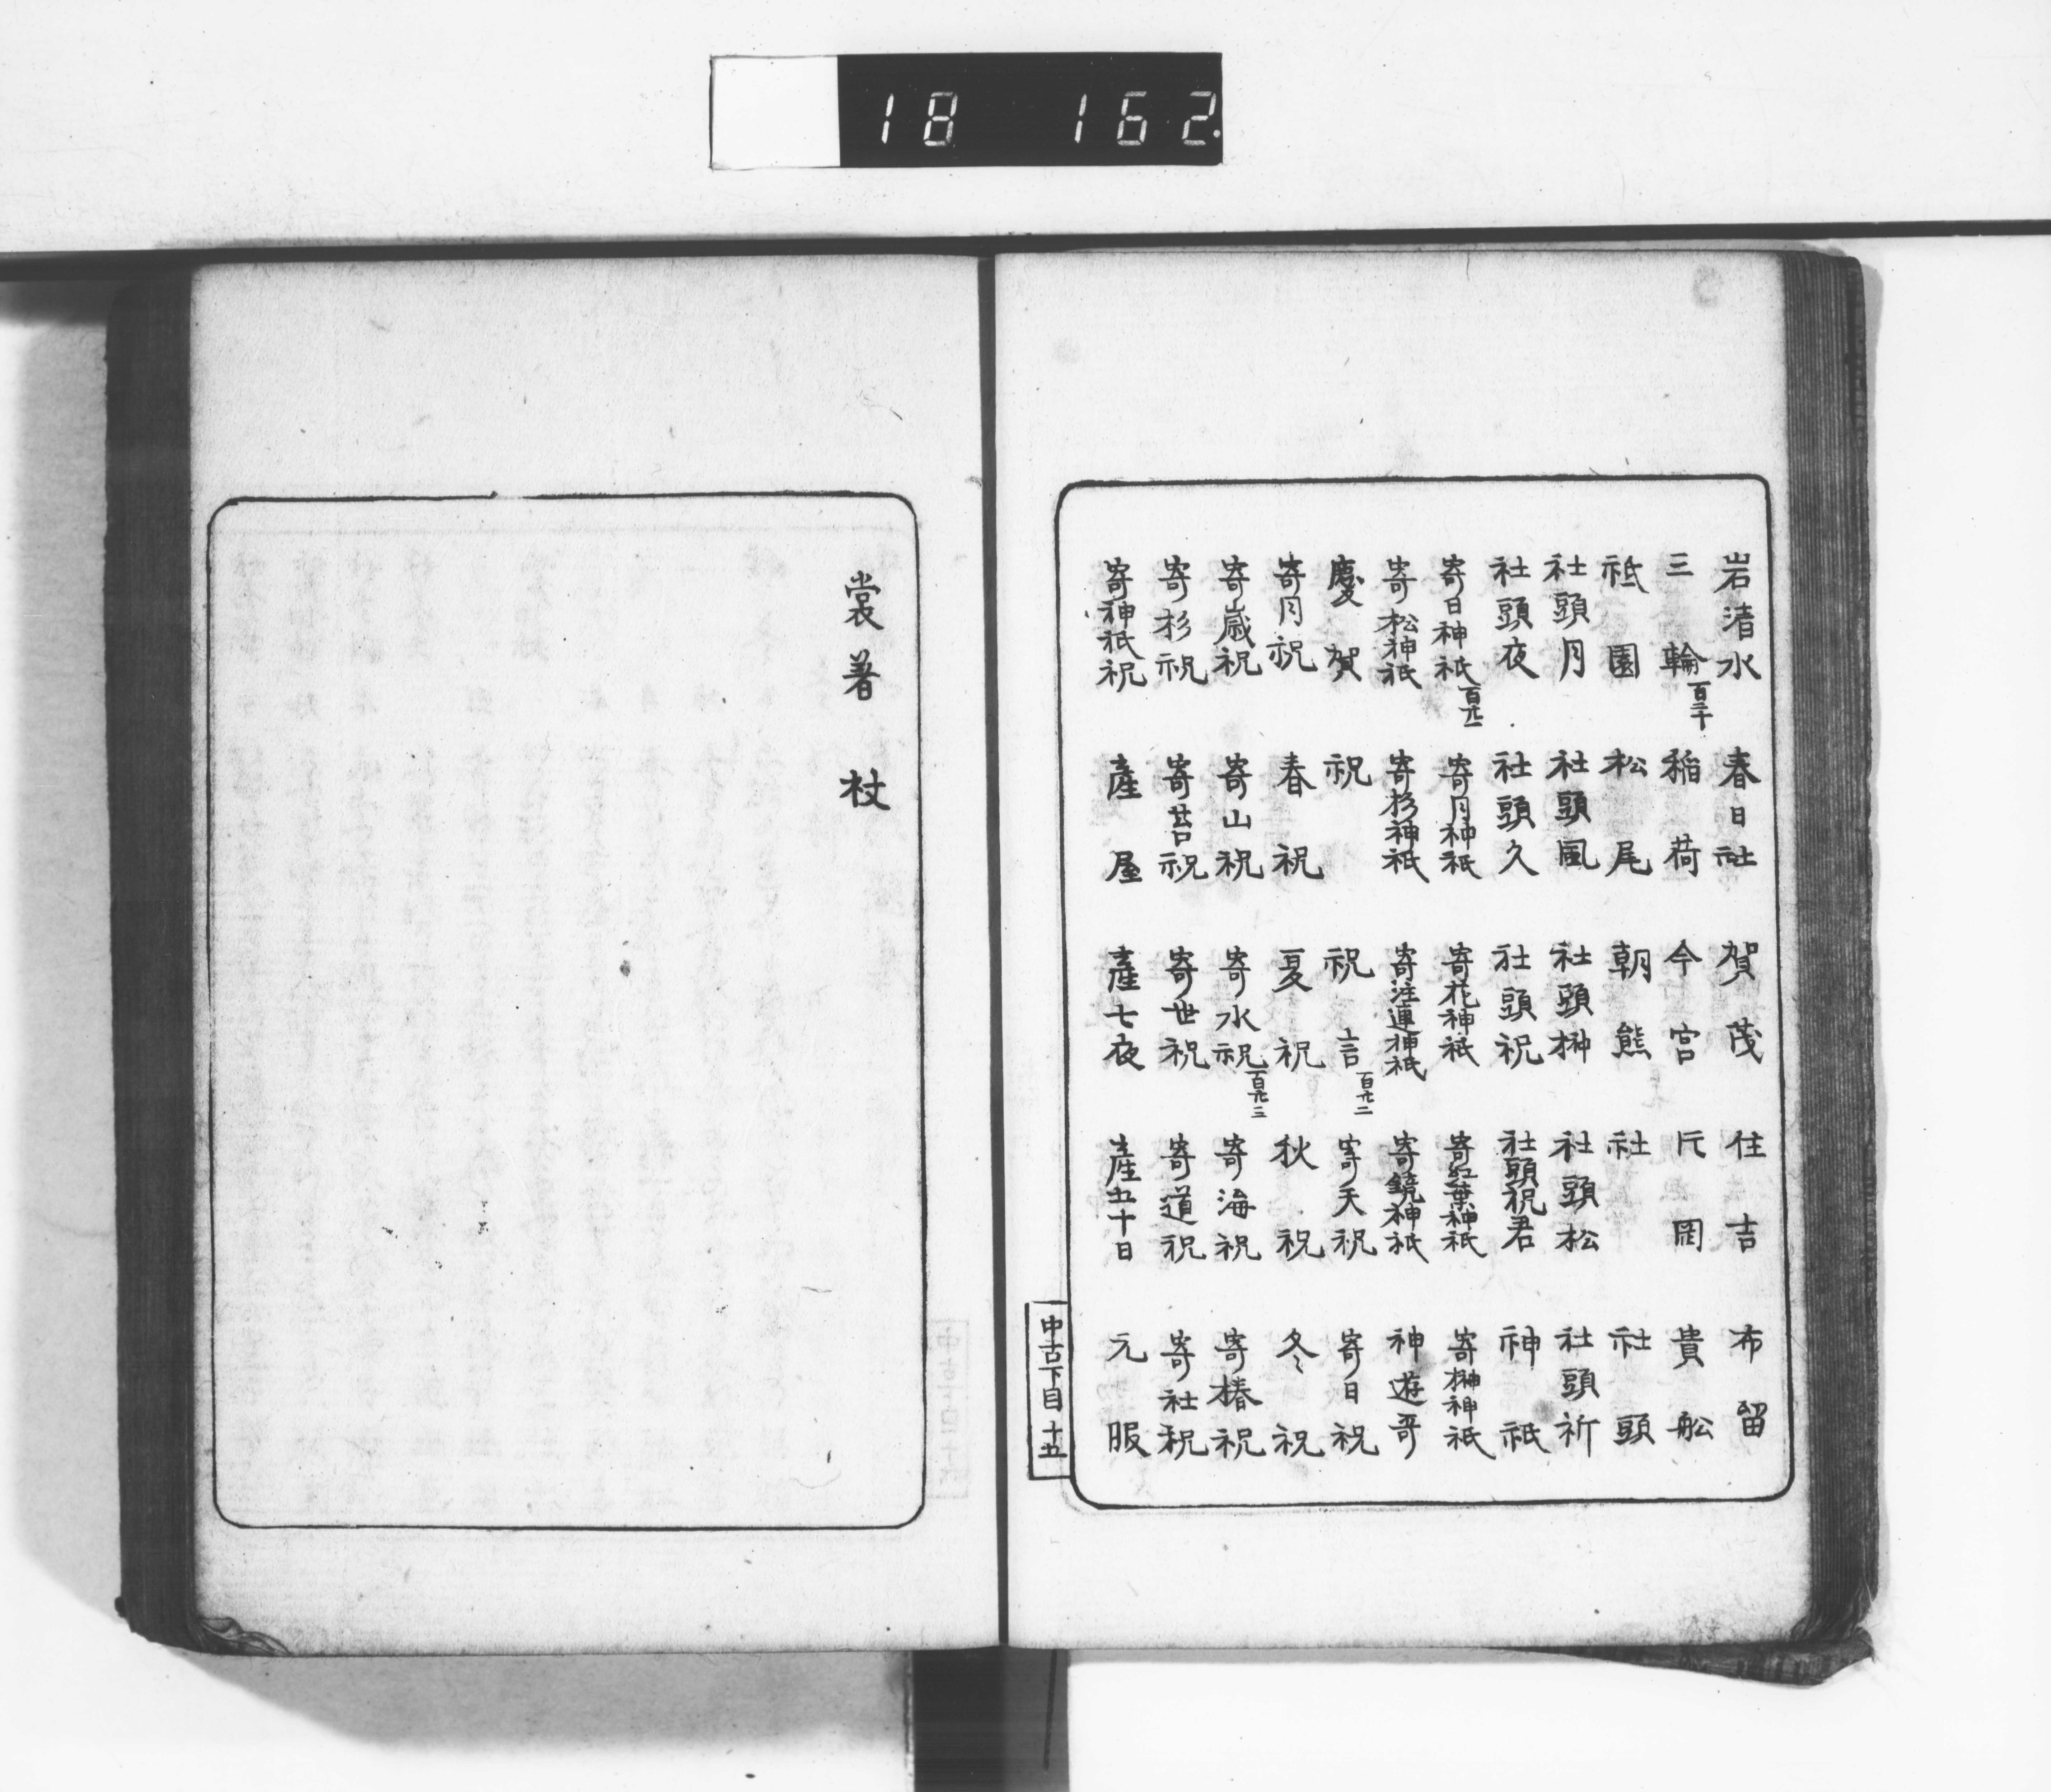 18 162
岩清水 春日社 賀茂 住吉 布留
三輪 百二十 稲荷 今宮 片岡 貴舩
祗園 松尾 朝熊 社 社頭
社頭月 社頭風 社頭榊 社頭松 社頭祈
社頭夜 社頭久 社頭祝 社頭祝君 神祇
寄日神祇 百廿一 寄月神祇 寄花神祇 寄紅葉神祇 寄榊神祇
寄松神祇 寄杉神祇 寄注連神祇 寄鏡神祇 神遊哥
慶賀 祝 祝言 百廿二 寄天祝 寄日祝
寄月祝 春祝 夏祝 秋祝 冬祝
寄歳祝 寄山祝 寄水祝 百廿三 寄海祝 寄椿祝
寄杉祝 寄苔祝 寄世祝 寄道祝 寄社祝
寄神祇祝 産屋 産七夜 産五十日 元服
中古下目 十五
裳著 杖